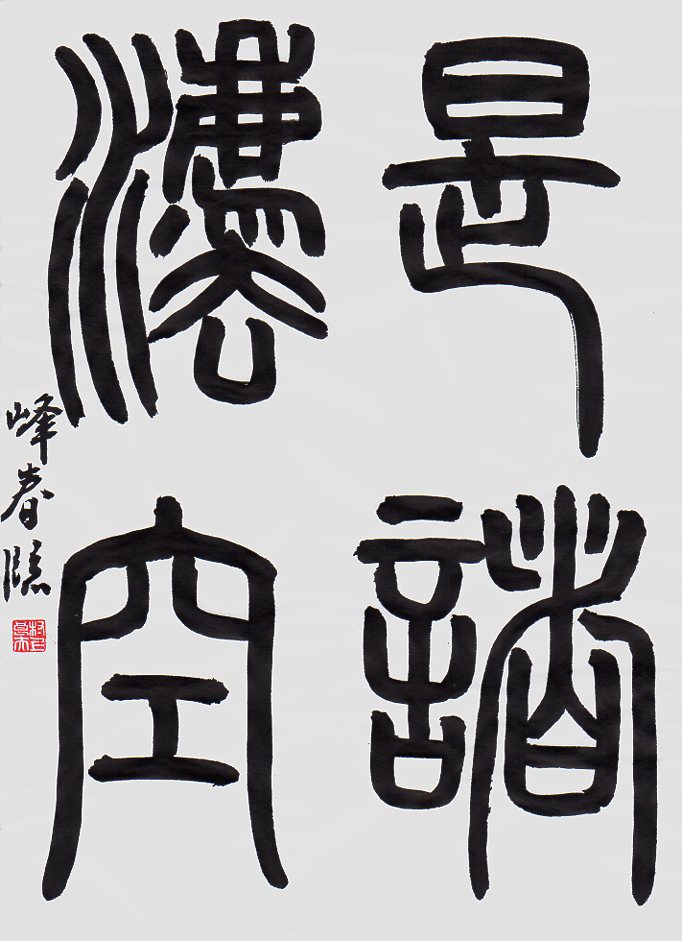 是諸
灋空
峰春臨